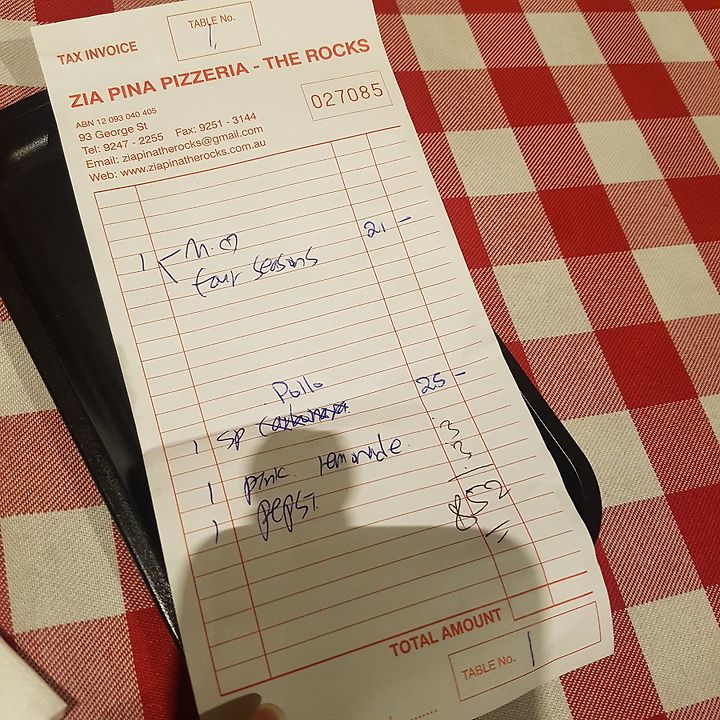 TABLE No.
1
TAX INVOICE
ZIA PINA PIZZERIA - THE ROCKS
ABN 12 093 040 405
93 George St
Tel: 9247 - 2255 Fax: 9251 - 3144
Email: ziapinatherocks@gmail.com
Web: www.ziapinatherocks.com.au
027085
1 M.♡ 21 -
four seasons
Pollo 25 -
1 SP Carbonara
1 pink lemonade 3
1 pepsi 3
$52
TOTAL AMOUNT
TABLE No. 1